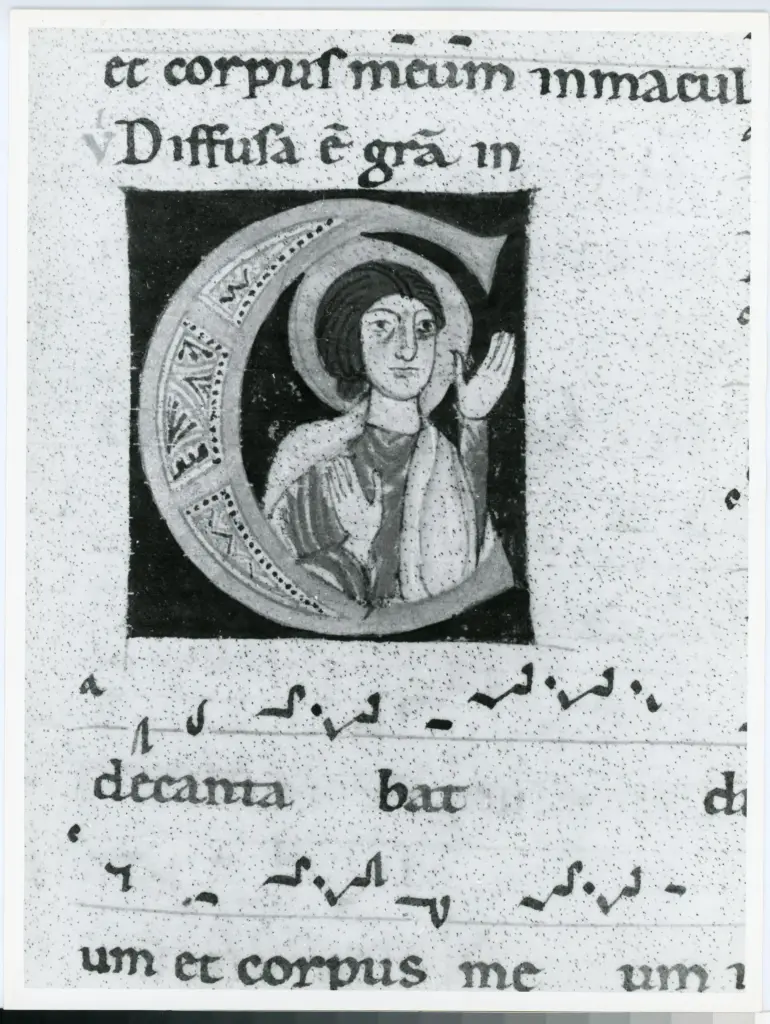 et corpuſ mēūm inmacul
v Diffuſa ē grā in
C
a
decanta bat
e
um et corpus me um